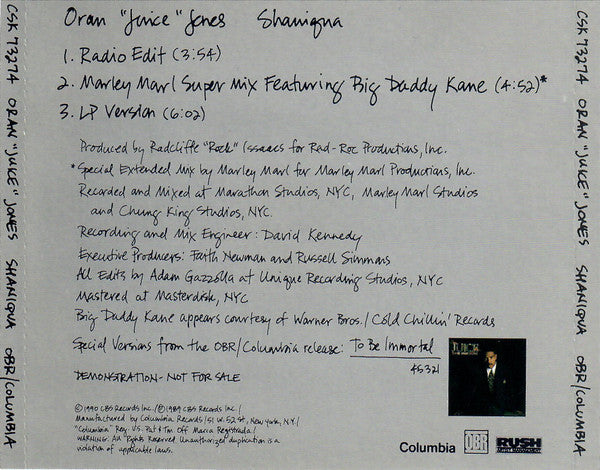 Oran "Juice" Jones Shaniqua
1. Radio Edit (3:54)
2. Marley Marl Super Mix Featuring Big Daddy Kane (4:52)*
3. LP Version (6:02)
Produced by Radcliffe "Rock" Issacs for Rad-Roc Productions, Inc.
*Special Extended Mix by Marley Marl for Marley Marl Productions, Inc.
Recorded and Mixed at Marathon Studios, NYC, Marley Marl Studios
and Chung King Studios, NYC.
Recording and Mix Engineer: David Kennedy
Executive Producers: Faith Newman and Russell Simmons
All Edits by Adam Gazzola at Unique Recording Studios, NYC
Mastered at Masterdisk, NYC
Big Daddy Kane appears courtesy of Warner Bros./Cold Chillin' Records
Special Versions from the OBR/Columbia release: To Be Immortal
45321
DEMONSTRATION-NOT FOR SALE
© 1990 CBS Records Inc./℗ 1989 CBS Records Inc./
Manufactured by Columbia Records/51 W. 52 St., New York, N.Y./
"Columbia" Reg. U.S. Pat & Tm. Off. Marca Registrada/
WARNING: All Rights Reserved. Unauthorized duplication is a
violation of applicable laws.
JUICE
Columbia OBR RUSH
ARTIST MANAGEMENT
CSK 73274 ORAN "JUICE" JONES SHANIQUA OBR/COLUMBIA
CSK 73274 ORAN "JUICE" JONES SHANIQUA OBR/COLUMBIA